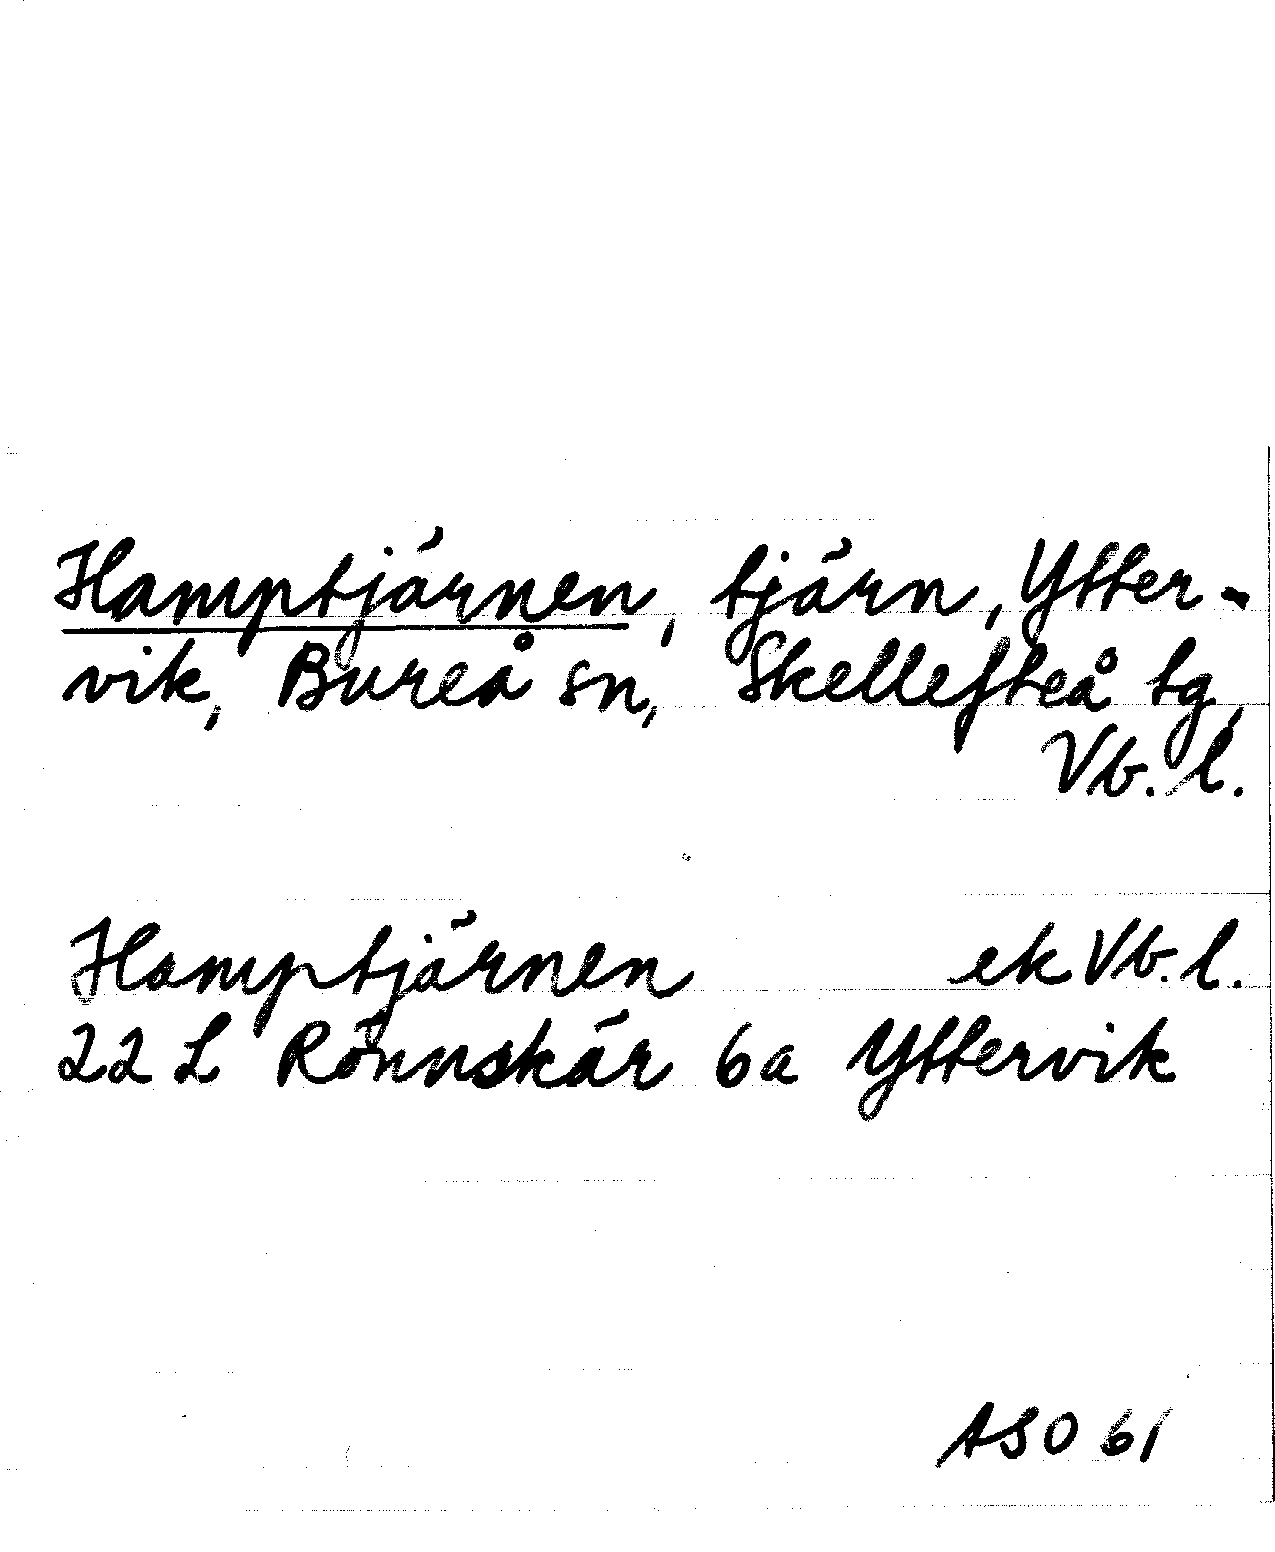 Hamptjärnen, tjärn, Ytter-
vik, Bureå sn, Skellefteå tg,
Vb. l.
Hamptjärnen ek Vb. l.
22 L Rönnskär 6a Yttervik
ASO 61